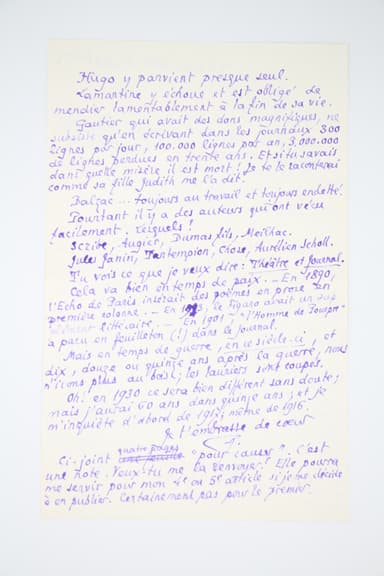 Hugo y parvient presque seul.
Lamartine y échoue et est obligé de
mendier lamentablement à la fin de sa vie.
Gautier qui avait des dons magnifiques, ne
subsiste qu'en écrivant dans les journaux 300
lignes par jour, 100.000 lignes par an, 3.000.000
de lignes perdues en trente ans. Et si tu savais
dans quelle misère il est mort! Je te le raconterai
comme sa fille Judith me l'a dit.
Balzac ... toujours au travail et toujours endetté.
Pourtant il y a des auteurs qui ont vécu
facilement. Lesquels!
Scribe, Augier, Dumas fils, Meilhac.
Jules Janin, Tantempion, Chose, Aurélien Scholl.
Tu vois ce que je veux dire: Théâtre et Journal.
Cela va bien en temps de paix. — En 1890,
l'Echo de Paris insérait des poèmes en prose en
première colonne. — En , le Figaro avait un
littéraire. — En 1901 "l'Homme de Pourpre"
a paru en feuilleton (!) dans le Journal.
Mais en temps de guerre, en ce siècle-ci, et
dix, douze ou quinze ans après la guerre, nous
n'irons plus au bois; les lauriers sont coupés.
Oh! en 1930 ce sera bien différent sans doute;
mais j'aurai 60 ans dans quinze ans; et je
m'inquiète d'abord de 1915, même de 1916.
& t'embrasse de cœur
P.
Ci-joint quatre pages "pour causer". C'est
une note. Veux-tu me la renvoyer? Elle pourra
me servir pour mon 4e ou 5e article si je me décide
à en publier. Certainement pas pour le premier.